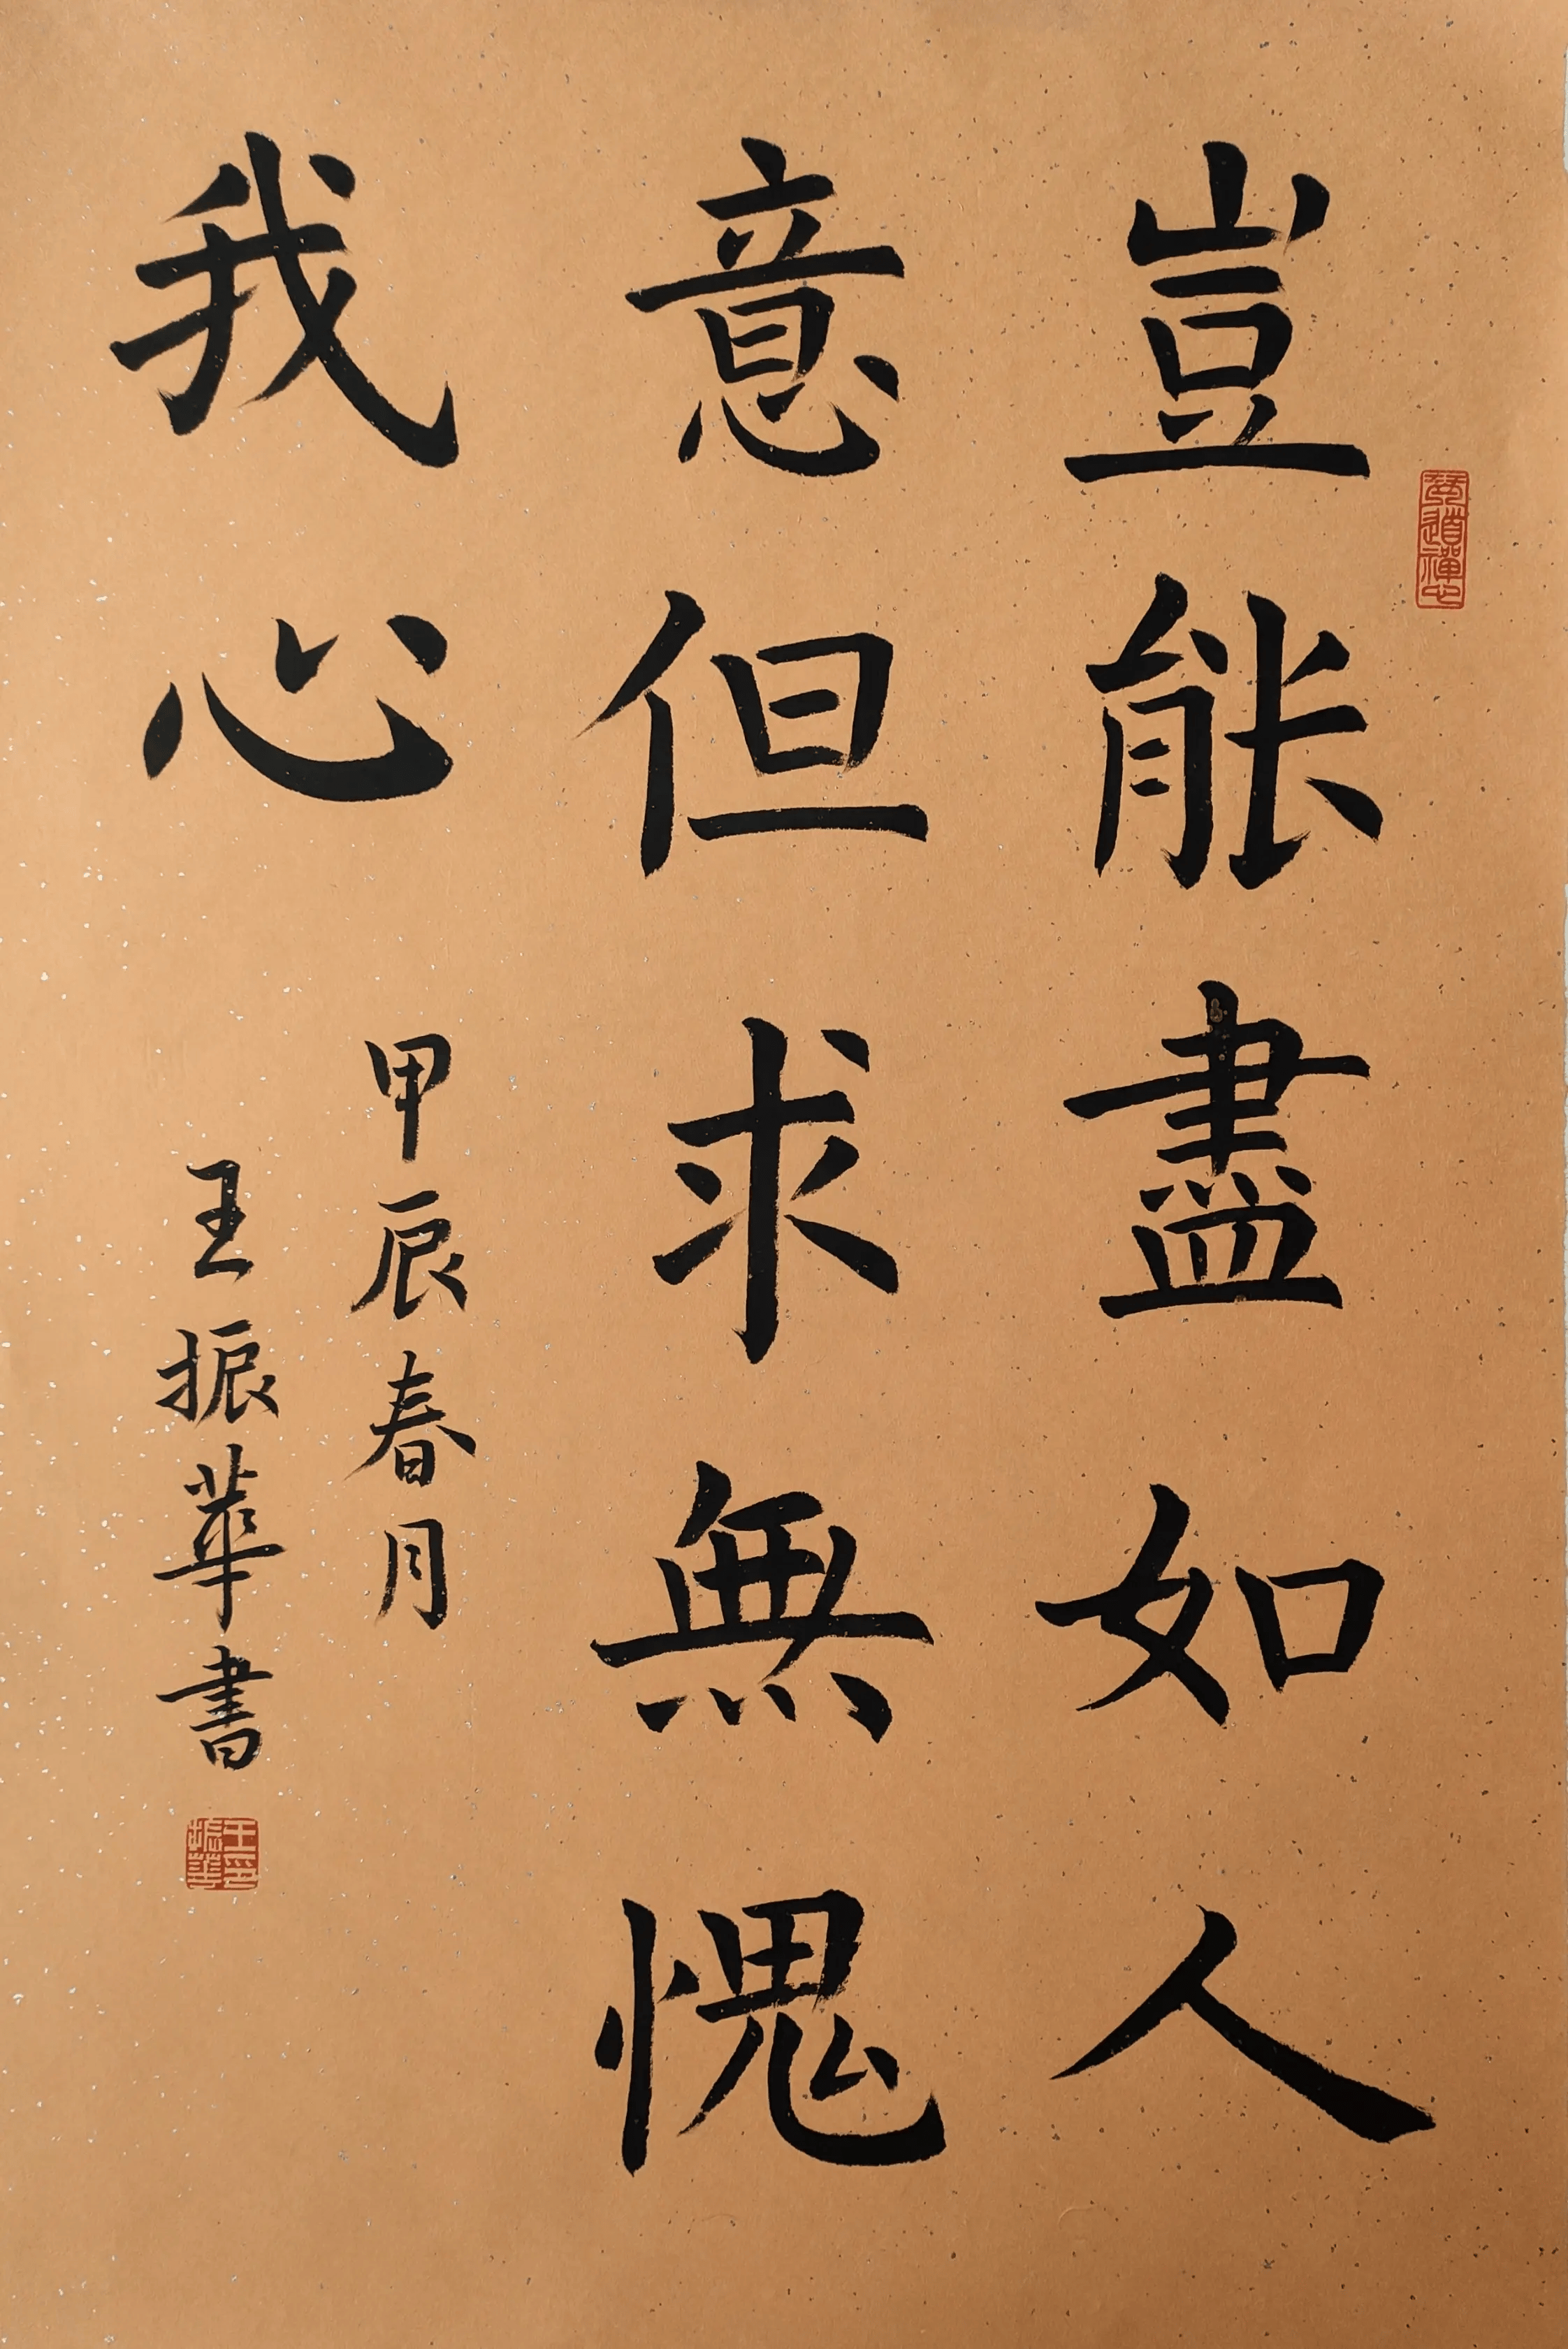 豈能盡如人
意但求無愧
我心
甲辰春月
王振華書
王印振華